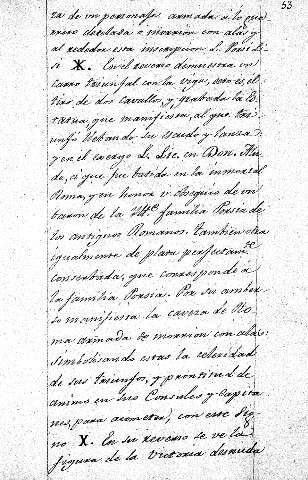 53
za de un personage armada a lo gue
rrero decelada o morrion con alas, y
al rededor esta inscripcion L. Porsi Li-
si X. En el reverso demuestra un
carro triunfal con la viga, esto es, el
tiro de dos cavallos, y grabada la Es-
tatua, que manifiesta, al que tri-
unfó llebando su escudo y lanza;
y en el exergo L. Lic. en Don. Au-
de, ci que fue batida en la inmortal
Roma, y en honor u obsequio de un
baron de la Ille. familia Porsia de
los antiguos Romanos. Tambien otra
igualmente de plata perfectamte.
conserbada, que corresponde a
la familia Porsia. Por su amber-
so manifiesta la caveza de Ro-
ma armada de morrion con alas:
simbolisando estas la celeridad
de sus triunfos, y prontitud de
animo en sus Consules y Capita
nes, para acometer, con este sig-
no X. En su reverso se ve la
figura de la Victoria desnuda